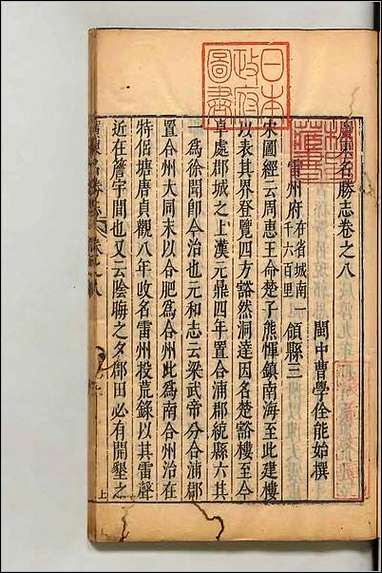 廣東名勝志卷之八
閩中曹學佺能始撰
雷州府在省城南一千六百里領縣三
宋圖經云周惠王命楚子熊惲鎮南海至此建樓
以表其界登覽四方豁然洞達因名楚豁樓至今
卓處郡城之上漢元鼎四年置合浦郡統縣六其
一為徐聞即今治也元和志云梁武帝分合浦郡
置合州大同末以合肥為合州此為南合州治在
特倨塘唐貞觀八年收名雷州投荒錄以其雷聲
近在簷宇間也又云陰晦之夕郡田必有開墾之
上
日本政府圖書